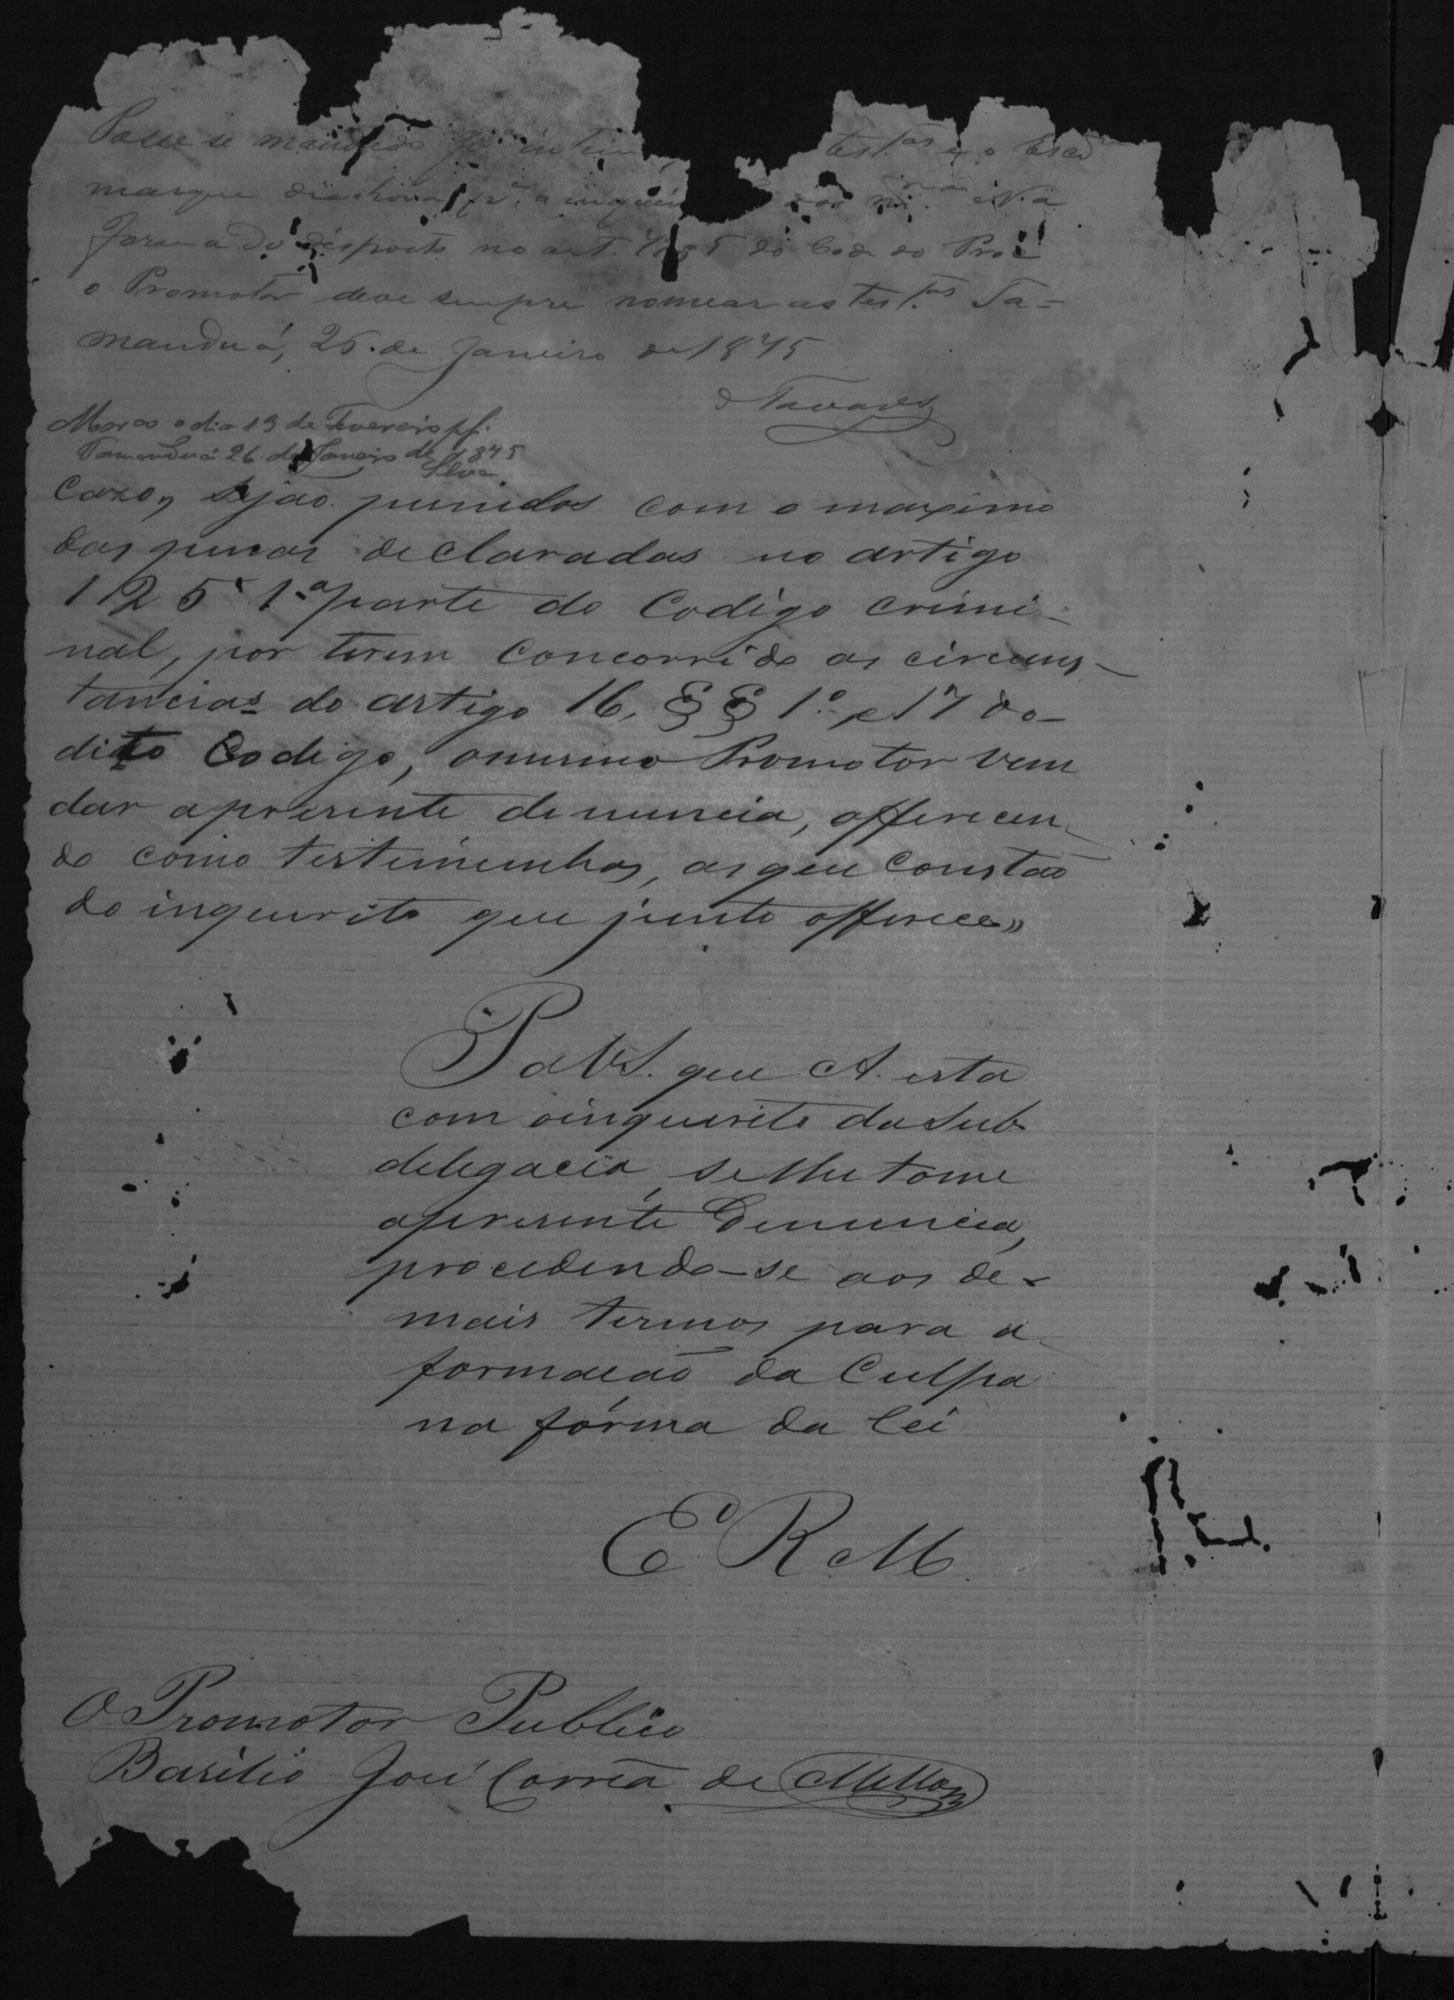 Passe se mandado pª intim testas e o Escrm
marque dia e hora pª a inquiri das mmas Na
forma do disposto no art. do Cod. do Proc
o Promotor deve sempre nomear as testas Ta=
manduá, 26 de Janeiro de 1875
Tavares
Marco o dia 13 de Fevereiro pf.
Tamanduá 26 de Janeiro de 1875
Silva
Cazo, sejão punidos com o maximo
das penas declaradas no artigo
125 1.ª parte do Codigo Crimi-
nal, por terem concorrido as circuns-
tancias do artigo 16, §§ 1.º e 17 do-
dito Codigo, o mesmo Promotor vem
dar a presente denuncia, offerecen-
do como testimunhas, as que constão
do inquerito que junto offerece»
P. a V.S. que A. esta
com o inquerito da Sub-
delegacia, se lhe tome
a presente Denuncia,
procedendo-se aos de-
mais termos para a
formacão da Culpa
na fórma da lei
E. R. M.
O Promotor Publico
Basilio José Corrêa de Mello